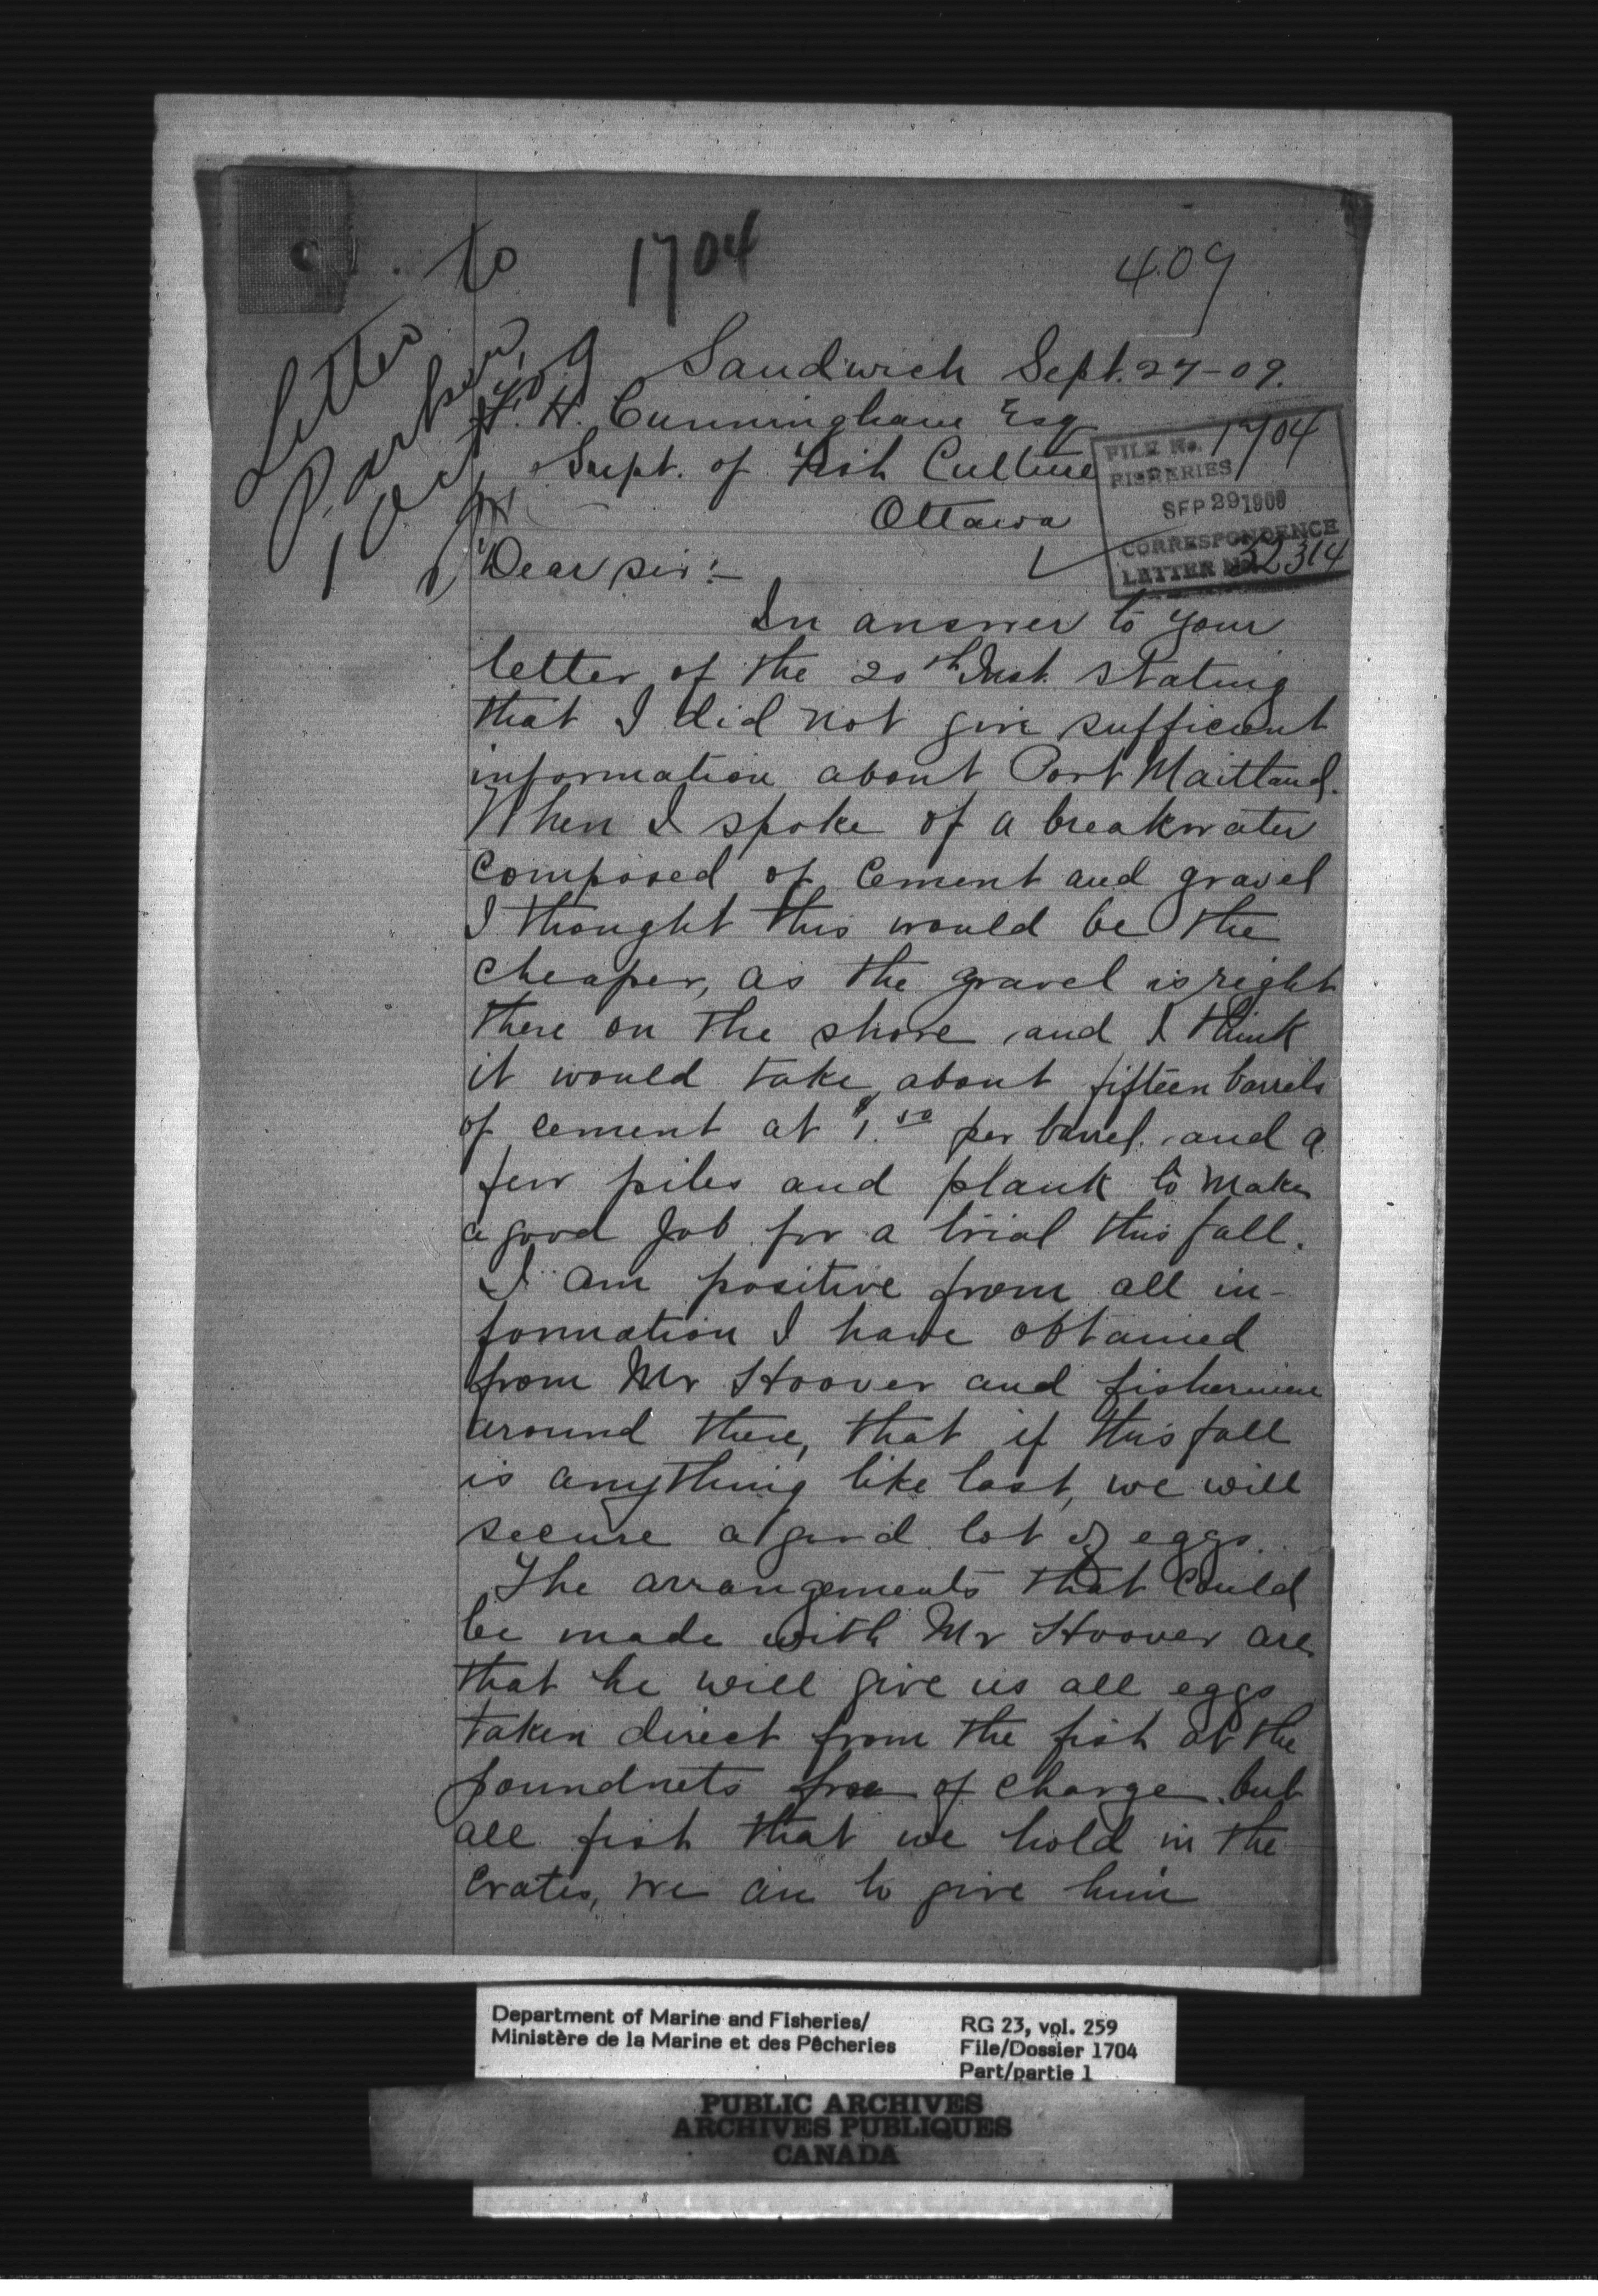 1704
409
Letter to
Parker
1 Oct. 09
Sandwich Sept. 27-09.
F. H. Cunningham Esq
Supt. of Fish Culture
Ottawa
FILE No. 1704
FISHERIES
SEP 29 1909
CORRESPONDENCE
LETTER No. 32314
Dear sir:-
In answer to your
letter of the 20th Inst. stating
that I did not give sufficient
information about Port Maitland.
When I spoke of a breakwater
composed of cement and gravel
I thought this would be the
cheaper, as the gravel is right
there on the shore and I think
it would take about fifteen barrels
of cement at $1.50 per barrel. and a
few piles and plank to make
a good Job for a trial this fall.
I am positive from all in-
formation I have obtained
from Mr Hoover and fishermen
around there, that if this fall
is anything like last, we will
secure a good lot of eggs.
The arrangements that could
be made with Mr Hoover are
that he will give us all eggs
taken direct from the fish at the
poundnets free of charge. but
all fish that we hold in the
crates, we are to give him
Department of Marine and Fisheries/
Ministère de la Marine et des Pêcheries
RG 23, vol. 259
File/Dossier 1704
Part/partie 1
PUBLIC ARCHIVES
ARCHIVES PUBLIQUES
CANADA